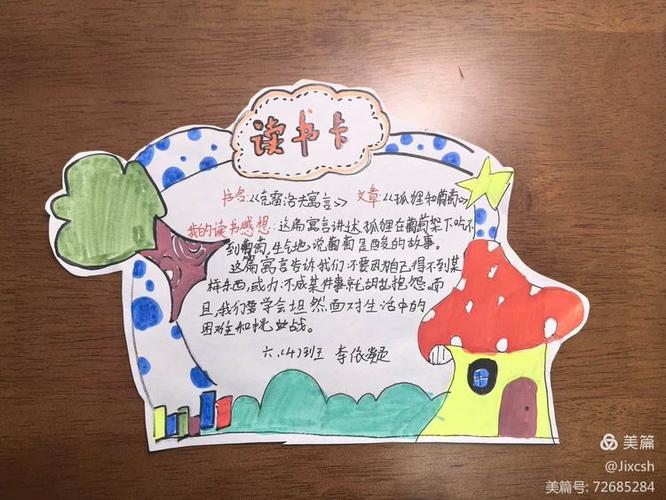 读书卡
书名:《克雷洛夫寓言》 文章:《狐狸和葡萄》
我的读书感想:这篇寓言讲述狐狸在葡萄架下吃不
到葡萄,生气地说葡萄是酸的故事。
这篇寓言告诉我们:不要因自己得不到某
样东西,或办不成某件事就胡乱抱怨。而
且,我们要学会坦然面对生活中的
困难和挑战。
六.(4)班 李依
美篇
@Jixcsh
美篇号: 72685284